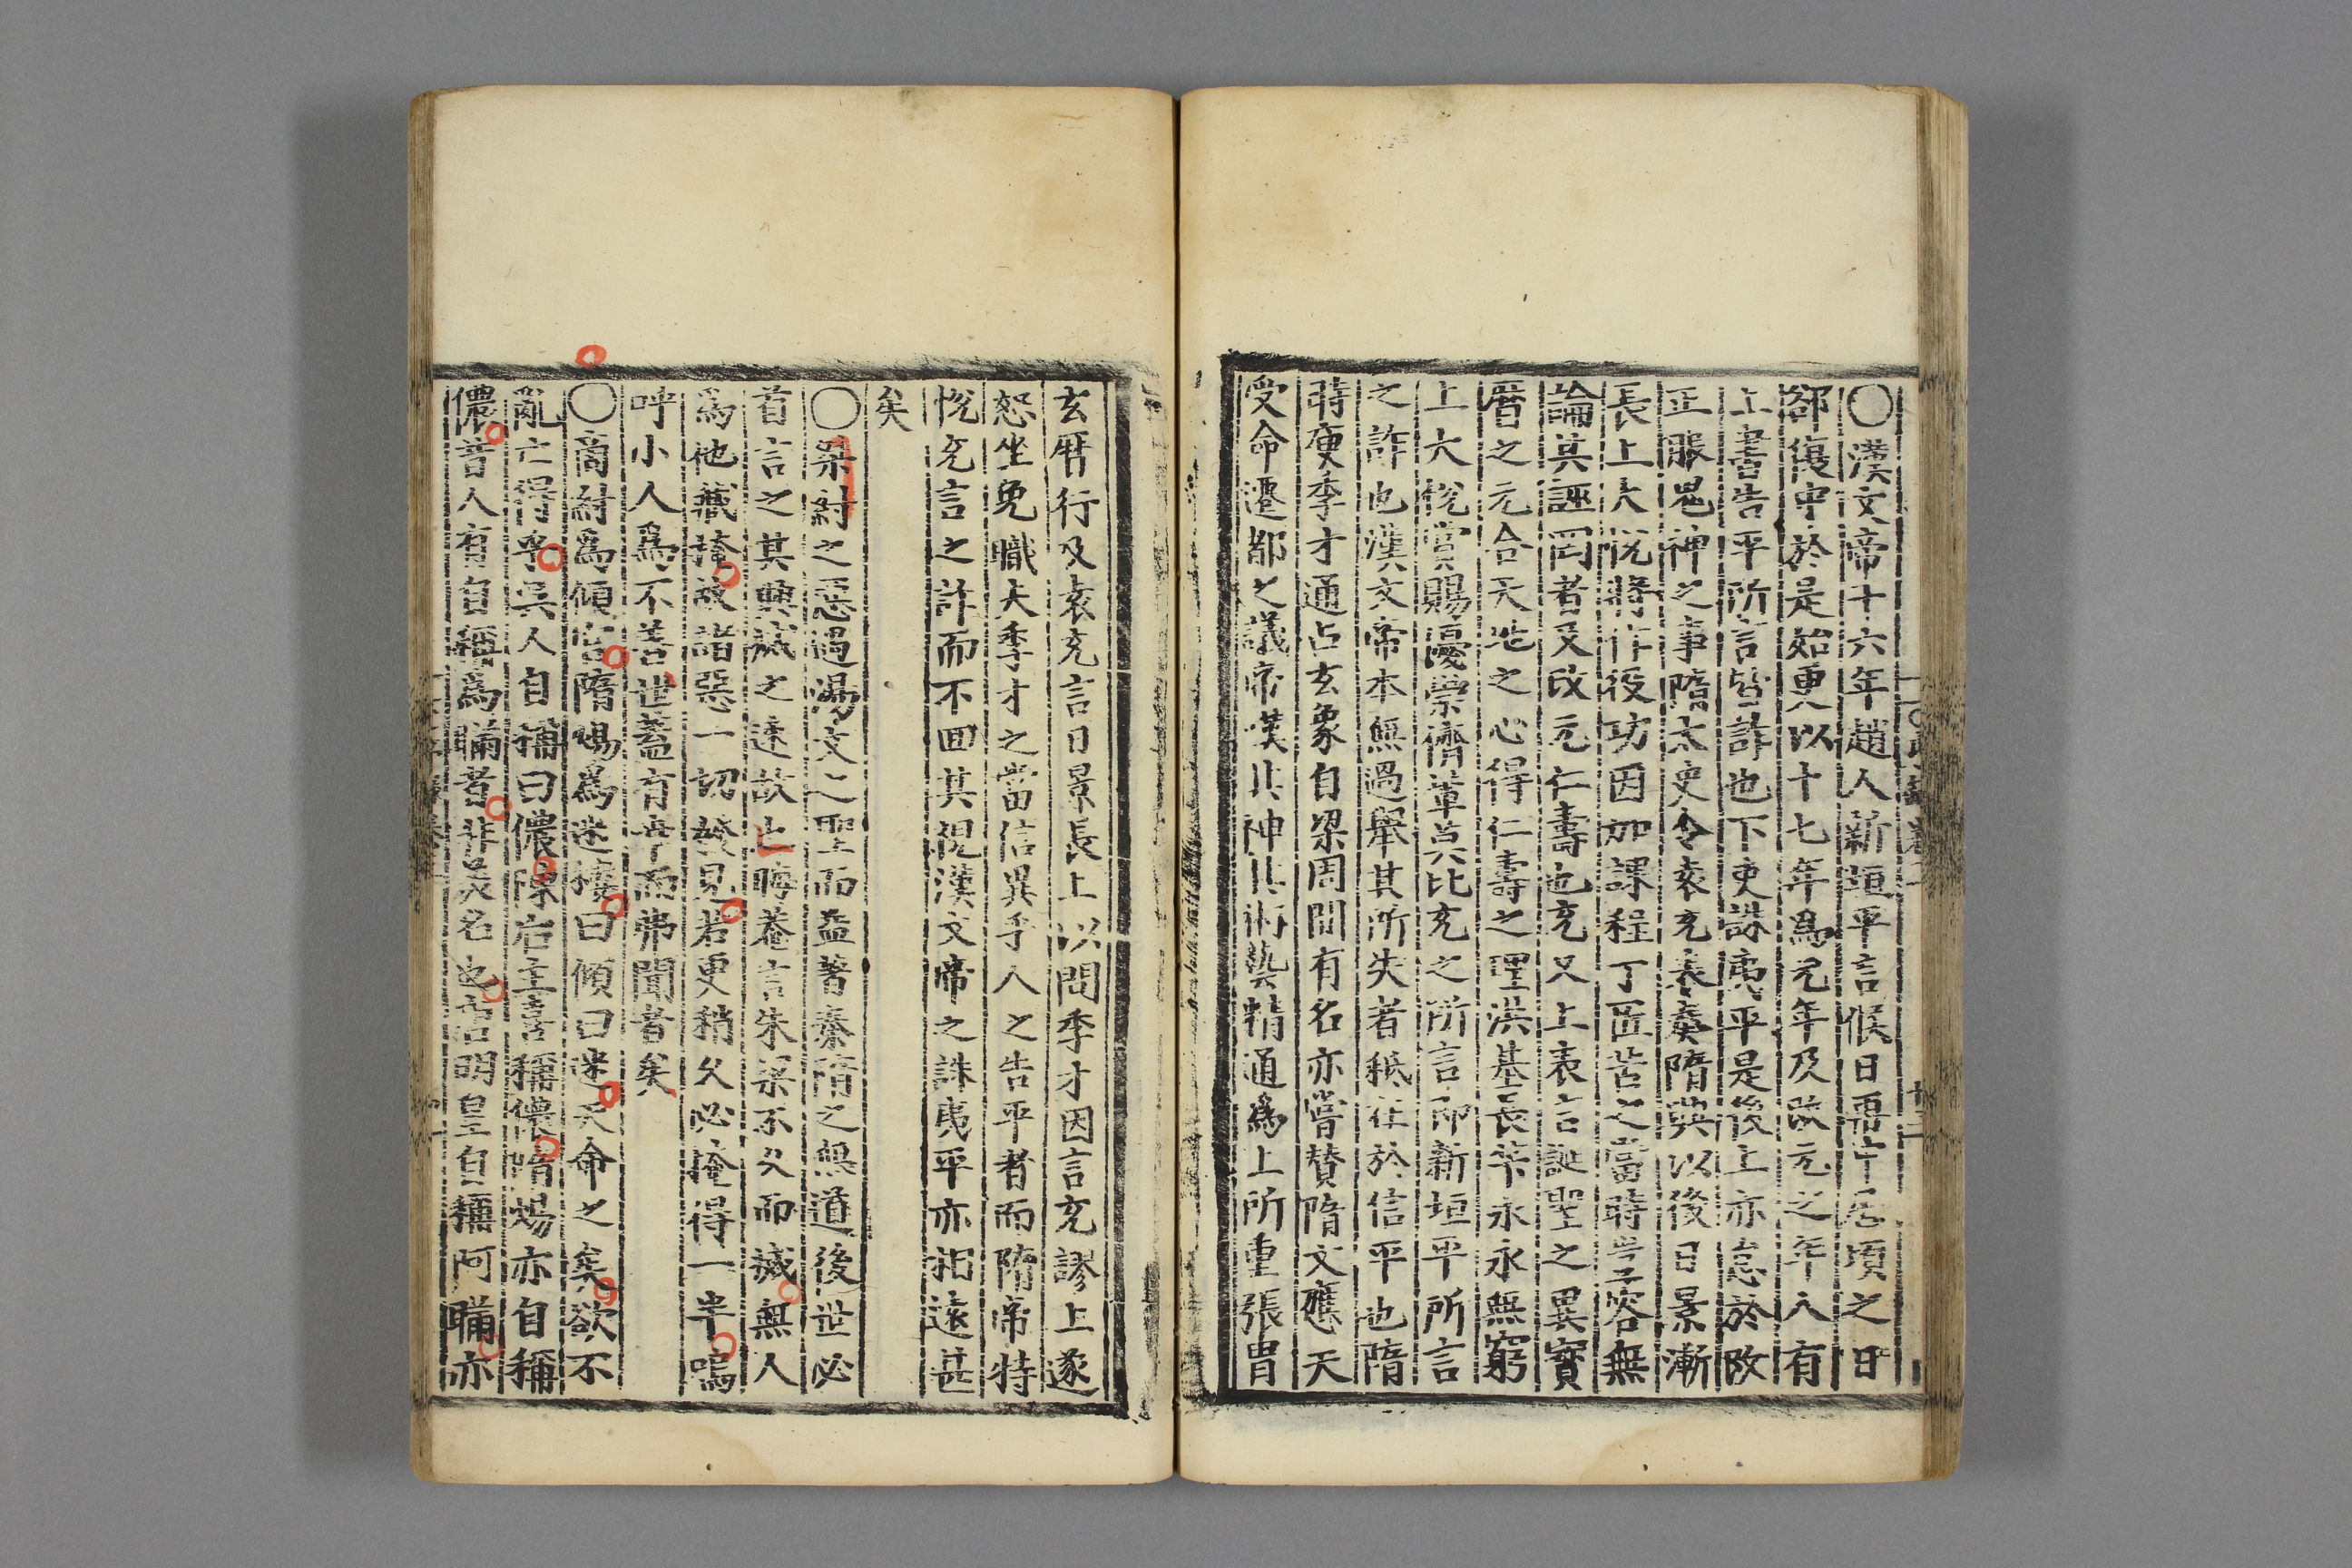 ○漢文帝十六年趙人新垣平言候日再中居頃之日
卻復中於是始更以十七年爲元年及改元之年人有
上書告平所言皆詐也下吏誅夷平是後上亦怠於改
正服鬼神之事隋太史令袁充表奏隋興以後日景漸
長上大悅將作役功因加課程丁匠苦之當時豈容無
論其誣罔者及改元仁壽也充又上表言誕聖之異寶
曆之元合天地之心得仁壽之理洪基長筭永永無窮
上大悅賞賜優崇儕輩莫比充之所言卽新垣平所言
之詐也漢文帝本無過擧其所失者秪在於信平也隋
時庾季才通占玄象自梁周間有名亦嘗賛隋文應天
受命遷都之議帝嘆其神其術藝精通爲上所重張胄
玄曆行及袁充言日景長上以問季才因言充謬上遂
怒坐免職夫季才之當信異乎人之告平者而隋帝特
悅充言之詐而不回其視漢文帝之誅夷平亦相遠甚
矣
○桀紂之惡過湯文之聖而益著秦隋之無道後世必
首言之其興滅之速故也晦菴言朱梁不久而滅無人
爲他藏掩故諸惡一切發見若更稍久必掩得一半嗚
呼小人爲不善世蓋有幸而弗聞者矣
○商紂爲傾宮隋煬爲迷樓曰傾曰迷天命之矣欲不
亂亡得乎吳人自稱曰儂陳后主喜稱儂隋煬亦自稱
儂昔人有自稱爲瞞者非美名也唐明皇自稱阿瞞亦